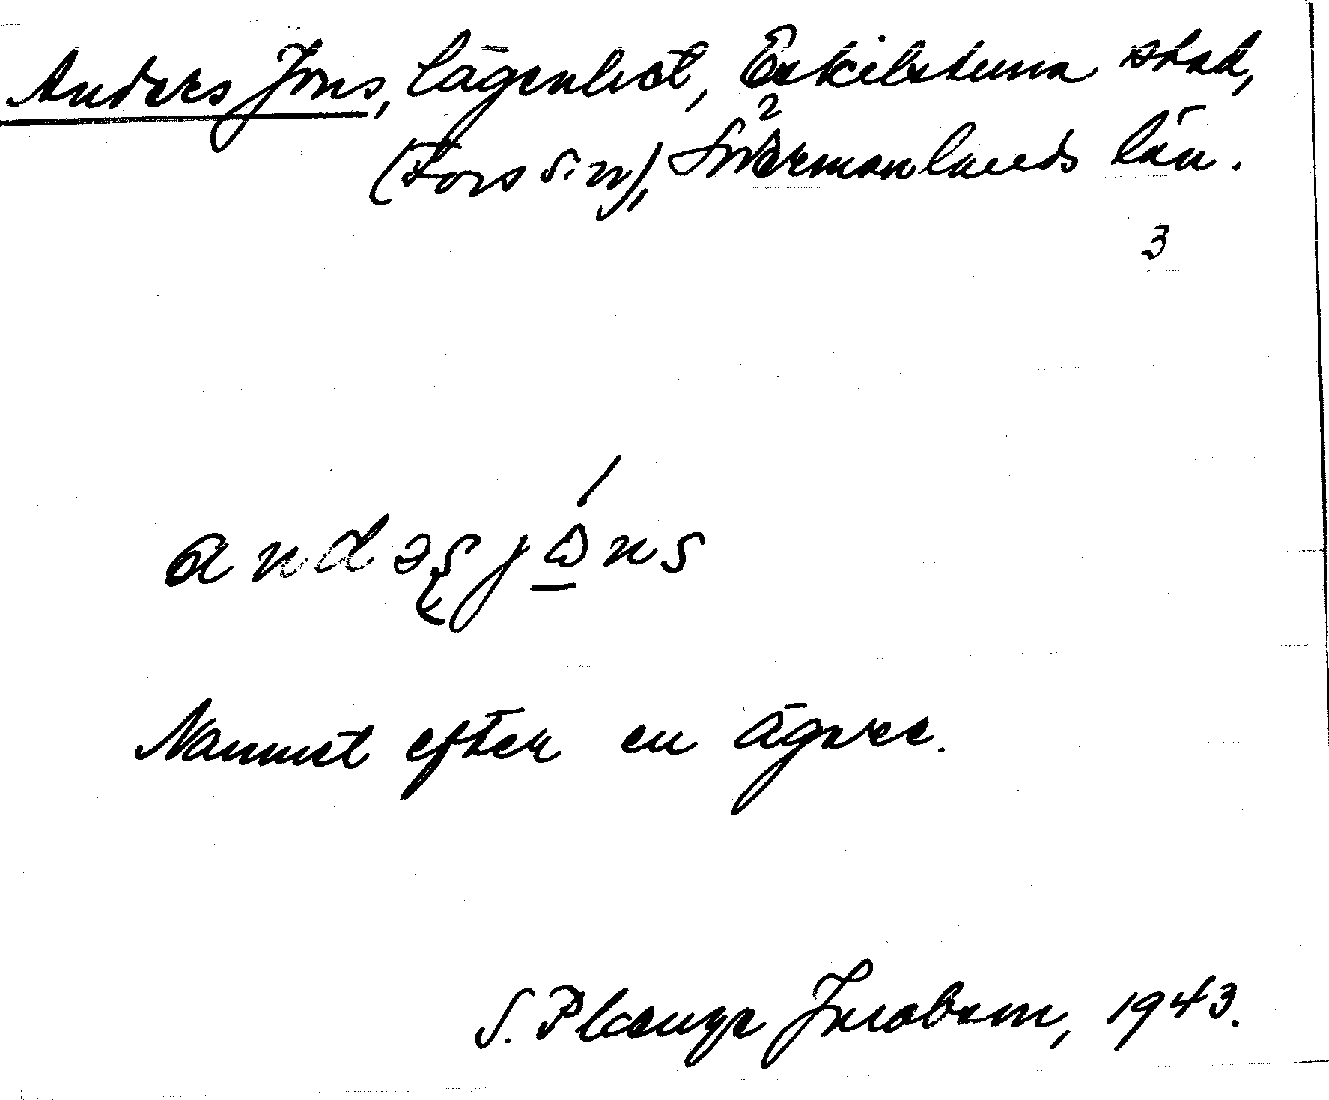 Anders Jons, lägenhet, Eskilstuna stad,
(Fors s:n), Södermanlands län.
3
andəs jòns
Namnet efter en ägare.
S. Plaenge Jacobson, 1943.